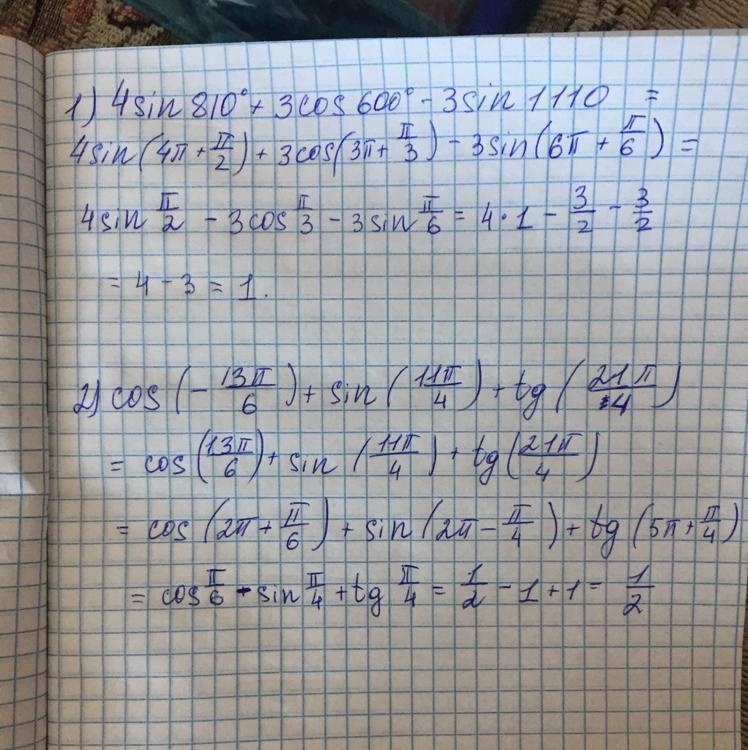 1) 4sin 810° + 3cos 600° - 3sin 1110 =
4sin(4π + π/2) + 3cos(3π + π/3) - 3sin(6π + π/6) =
4sin π/2 - 3cos π/3 - 3sin π/6 = 4·1 - 3/2 - 3/2
= 4 - 3 = 1.
2) cos(-13π/6) + sin(11π/4) + tg(21π/4)
= cos(13π/6) + sin(11π/4) + tg(21π/4)
= cos(2π + π/6) + sin(2π - π/4) + tg(5π + π/4)
= cos π/6 - sin π/4 + tg π/4 = 1/2 - 1 + 1 = 1/2